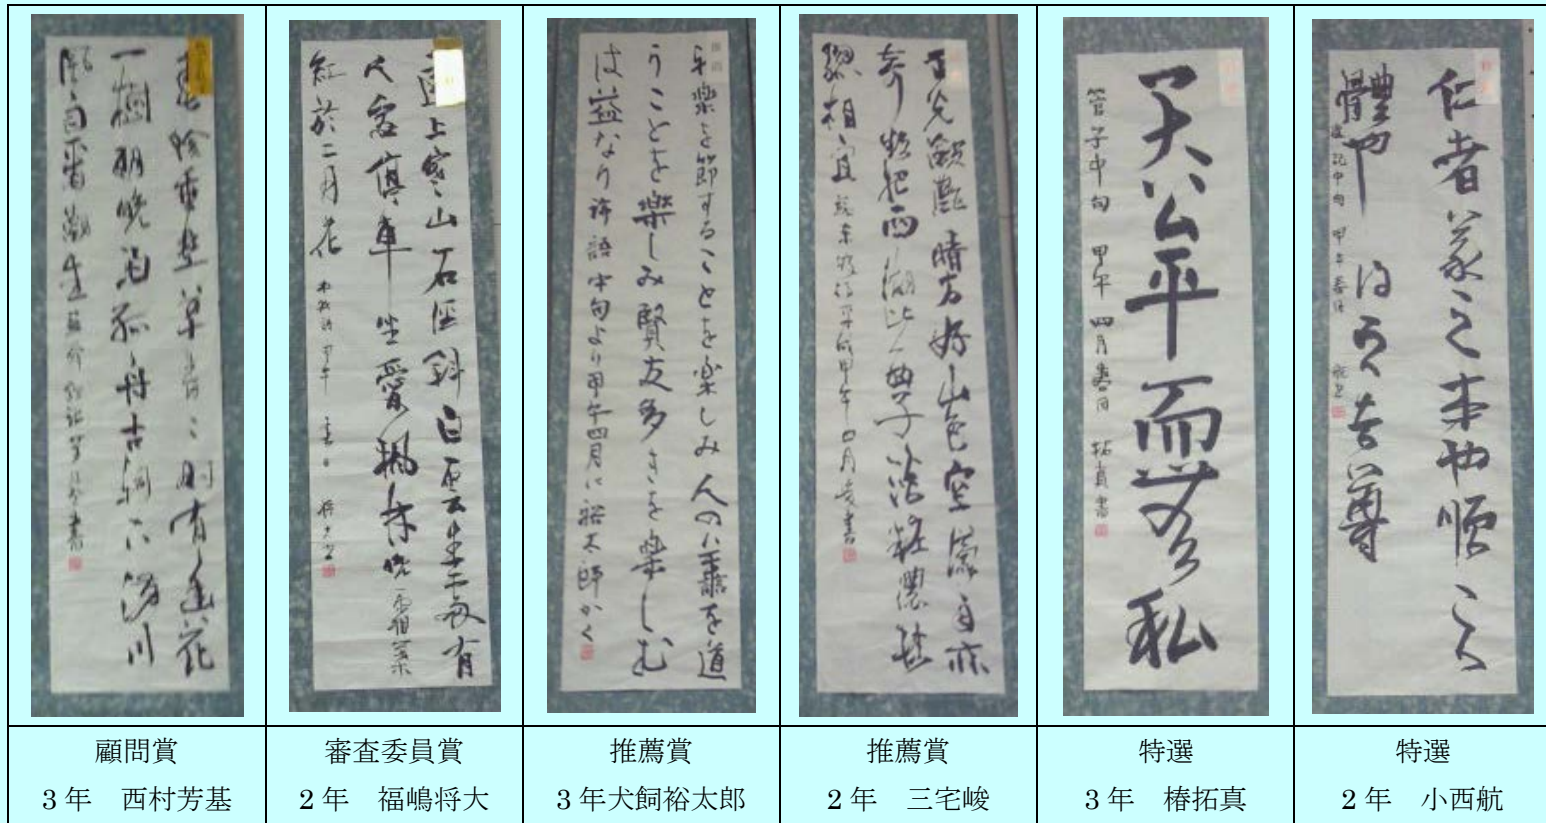 春陰垂野草青々時有幽花
一樹明晩泊孤舟古祠下満川
風雨看潮生
遠上寒山石徑斜白雲生處有
人家停車坐愛楓林晚霜葉
紅於二月花 杜牧詩 甲午 春日 将大書
礼楽を節することを楽しみ人の善を道
うことを楽しみ賢友多きを楽しむ
は益なり 論語中句より甲午四月に裕太郎かく
水光瀲灔晴方好山色空濛雨亦
奇欲把西湖比西子淡粧濃抹
總相宜 蘇東坡詩 平成甲午四月峻書
天公平而無私
管子中句 甲午 四月春日 拓真書
仁者義之本也順之
體也 得之者尊
禮記中句 甲午春日 航書
顧問賞
3年　西村芳基
審査委員賞
2年　福嶋将大
推薦賞
3年犬飼裕太郎
推薦賞
2年　三宅峻
特選
3年　椿拓真
特選
2年　小西航